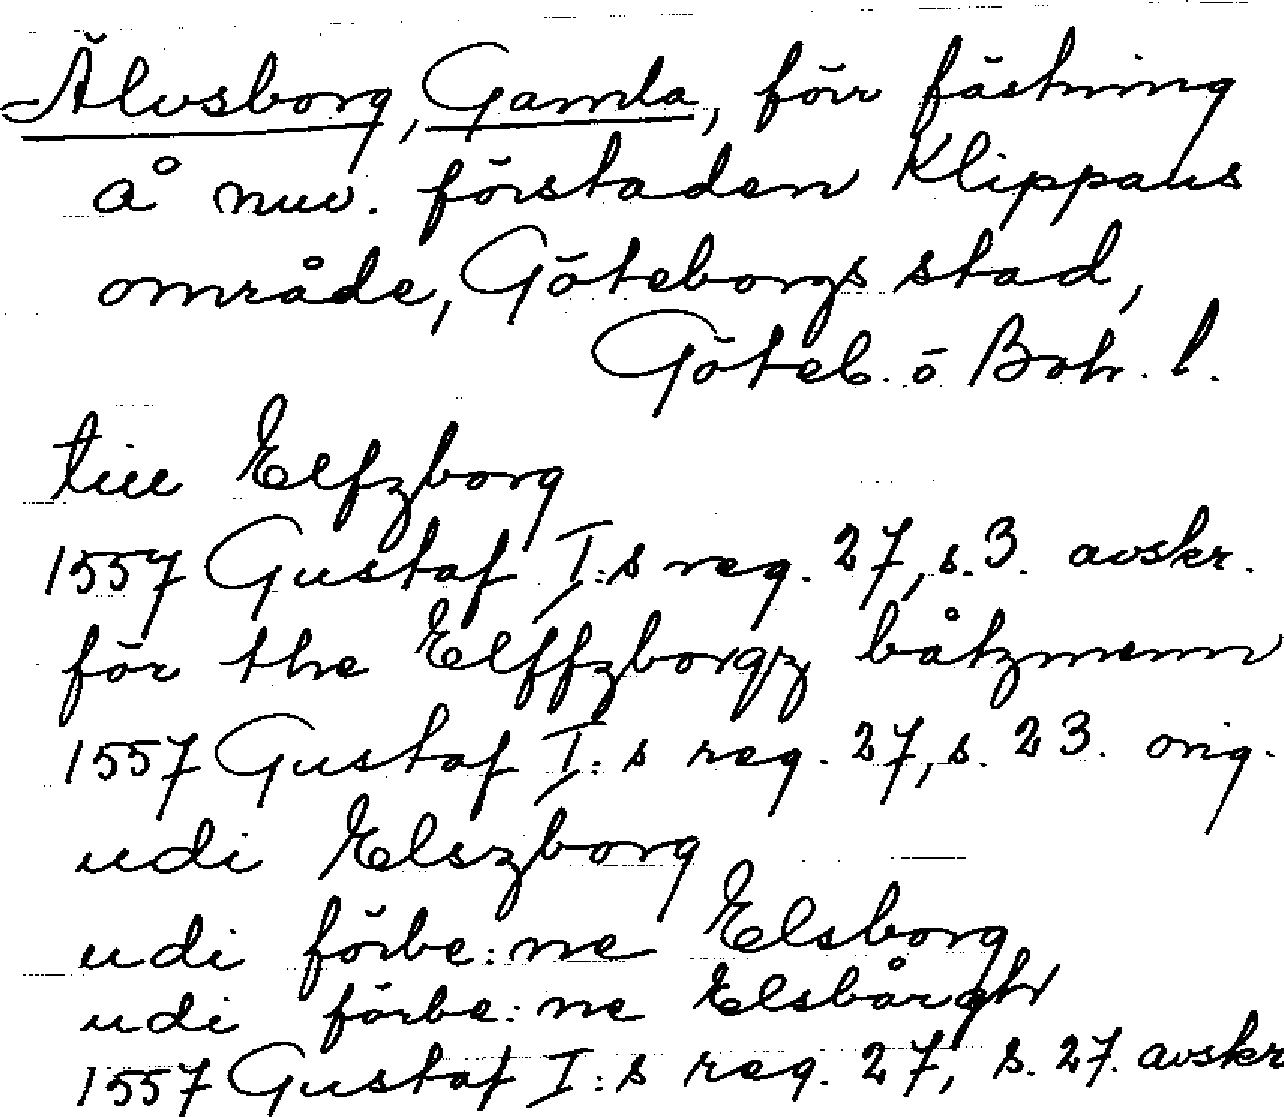 Älvsborg, Gamla, förr fästning
å nuv. förstaden Klippans
område, Göteborgs stad,
Göteb. o Boh. l.
till Elfzborg
1557 Gustaf I:s reg. 27, s. 3. avskr.
för the Elffzborgz båtzmenn
1557 Gustaf I:s reg. 27, s. 23. orig.
udi Elszborg
udi förbe:ne Elsborg
udi förbe:ne Elsbårgh
1557 Gustaf I:s reg. 27, s. 27. avskr